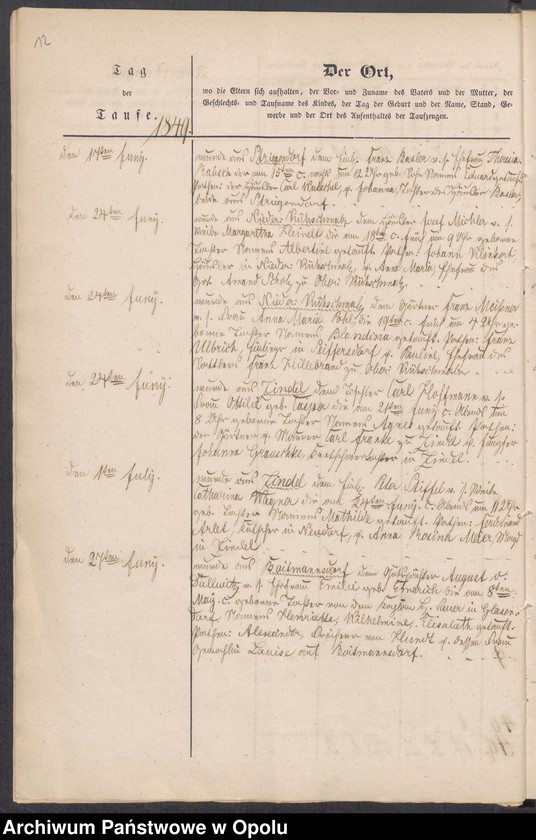 12
Tag
der
Taufe.
1849.
Der Ort,
wo die Eltern sich aufhalten, der Vor- und Zuname des Vaters und der Mutter, der
Geschlechts- und Taufname des Kindes, der Tag der Geburt und der Name, Stand, Ge-
werbe und der Ort des Aufenthaltes der Taufzeugen.
den 17ten Juny.
wurde aus Striegendorf dem Einl. Franz Basler u. s. Ehefrau Theresia
der am 15ten c. um 12 Uhr geb. Sohn Namens Eduard getauft.
Pathen: der Häusler Carl Johanna, Tochter des Häusler Basler,
beide aus Striegendorf.
den 24ten Juny.
wurde aus Nieder Kühschmalz dem Häusler Josef Michler u. s.
Weibe Margaretha Kleinelt die am 18ten c. früh um 9 Uhr geborene
Tochter Namens Albertine getauft. Pathen: Johann
Häusler in Nieder Kühschmalz, u. Anna Maria, Ehefrau des
Amand zu Ober Kühschmalz.
den 24ten Juny.
wurde aus Nieder Kühschmalz dem Gärtner Franz Meißner
u. s. Frau Anna Maria Pohl die 19ten c. früh um 4 Uhr ge-
borene Tochter Namens Blandina getauft. Pathen: Franz
Ulbrich, in Seiffersdorf u. Pauline, Ehefrau des
Franz Hillebrand zu Ober Kühschmalz.
den 24ten Juny.
wurde aus Zindel dem Carl Hoffmann u. s.
Frau Ottilie geb. Caspar die am 21ten Juny c. Abends um
8 Uhr geborene Tochter Namens Agnes getauft. Pathen:
der Gärtner u. Maurer Carl Franke zu Zindel u. Jungfer
Johanna in Zindel.
den 1ten July.
wurde aus Zindel dem Einl. Peter Stiffel u. s. Weibe
Catharina Wagner die am 24ten Juny c. Abends um 11 Uhr
geb. Tochter Namens Mathilde getauft. Pathen: Ferdinand
Arlet, Kutscher in Neudorf, u. Anna Rosina Magd
in Zindel.
den 27ten Juny.
wurde aus Koitmannsdorf dem Gutspächter August v.
u. s. Ehefrau Emilie geb. Friedrich die am 8ten
May c. geborene Tochter von dem Kaplan H. in Glasen-
dorf Namens Henriette, Wilhelmine, Elisabeth getauft.
Pathen: Alexander, Freiherr von u. dessen Frau
Gemahlin Louise auf Koitmannsdorf.
Archiwum Państwowe w Opolu